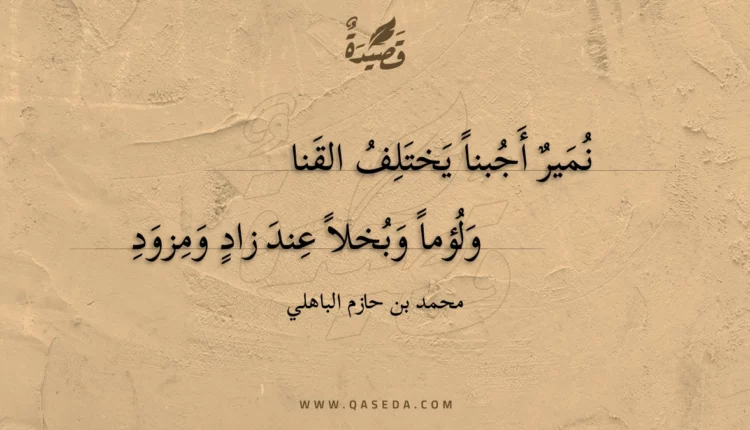 قَصيدَةٌ
نُمَيرٌ أَجُبناً يَختَلِفُ القَنا
وَلُؤماً وَبُخلاً عِندَ زادٍ وَمِزوَدِ
محمد بن حازم الباهلي
WWW.QASEDA.COM